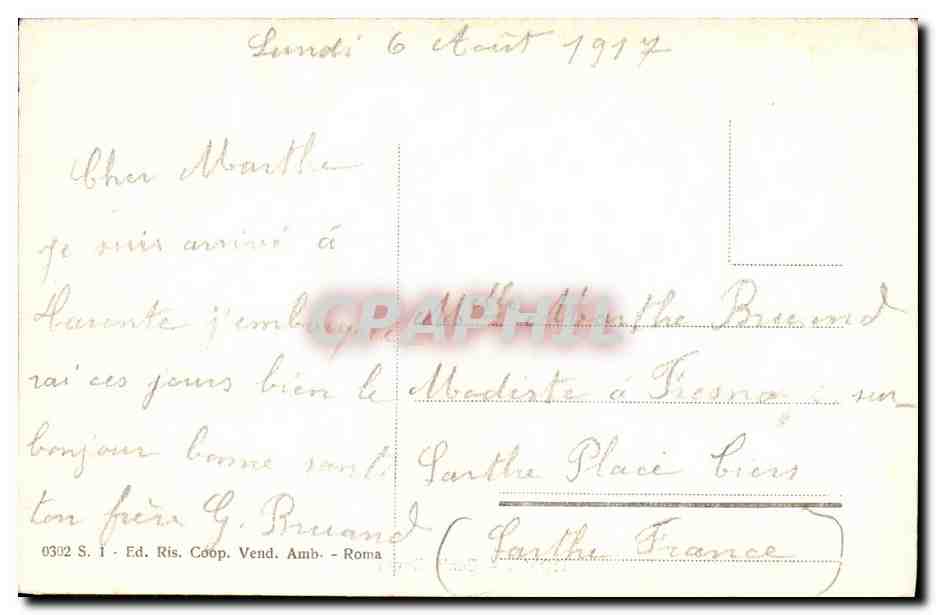 Lundi 6 Août 1917
Cher Marthe
je suis arrivé á
Tarente j'embarque
rai ces jours bien le
bonjour bonne santé
ton frère G. Bruand
0302 S. I - Ed. Ris. Coop. Vend. Amb. - Roma
CPAPHIL
Mlle Marthe Bruand
Modiste á Fresnay sur
Sarthe Place
(Sarthe France)